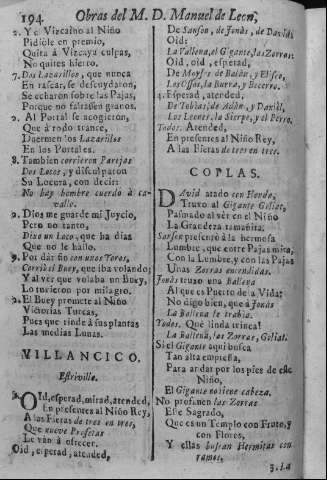 194. Obras del M. D. Manuel de Leon,
2. Y el Vizcaino al Niño
Pidiòle en premio,
Quita à Vizcaya culpas,
No quites hierro.
7. Dos Lazarillos, que nunca
En rascar, se descuydaron,
Se echaron sobre las Pajas,
Porque no faltassen granos.
2. Al Portal se acogieron,
Que à todo trance,
Duermen los Lazarillos
En los Portales.
8. Tambien corrieron Parejas
Dos Locos, y disculparon
Su Locura, con decir:
No hay hombre cuerdo à ca-
vallo.
2. Dios me guarde mi Juycio,
Pero no tanto,
Dixo un Loco, que ha dias
Que no le hallo.
9. Por dàr fin con unos Toros,
Corriò el Buey, que iba volando;
Y al vèr que volaba un Buey,
Lo tuvieron por milagro.
2. El Buey promete al Niño
Victorias Turcas,
Pues que rinde à sus plantas
Las medias Lunas.
VILLANCICO.
Estrivillo.
OId, esperad, mirad, atended,
En presentes al Niño Rey,
A las Fieras de tres en tres,
Que nueve Profetas
Le vàn à ofrecer.
Oid, esperad, atended,
De Sansòn, de Jonàs, de David:
Oid:
La Vallena, el Gigante, las Zorras:
Oid, oid, esperad,
De Moyses de Balàn, y Eliseo,
Los Ossos, la Burra, y Becerro.
4. Esperad, atended,
De Tobias, de Adàn, y Danièl,
Los Leones, la Sierpe, y el Perro.
Todos. Atended,
En presentes al Niño Rey,
A las Fieras de tres en tres.
COPLAS.
DAvid atado con Hondo,
Truxo al Gigante Goliat,
Pasmado al vèr en el Niño
La Grandeza tamañita.
Sanson presentò à la hermosa
Lumbre, que entre Pajas mira,
Con la Lumbre, y con las Pajas
Unas Zorras encendidas.
Jonàs truxo una Ballena
Al que es Puerto de la Vida:
No digo bien, que à Jonàs
La Ballena le trahìa.
Todos. Què linda trinca!
La Ballena, las Zorras, Goliat.
Si el Gigante aqui busca
Tan alta empressa,
Para andar por los pies de esse
Niño,
El Gigante no tiene cabeza.
No profanen las Zorras
Esse Sagrado,
Que es un Templo con Fruto, y
con Flores,
Y ellas buscan Hermitas con
ramos.
3. La